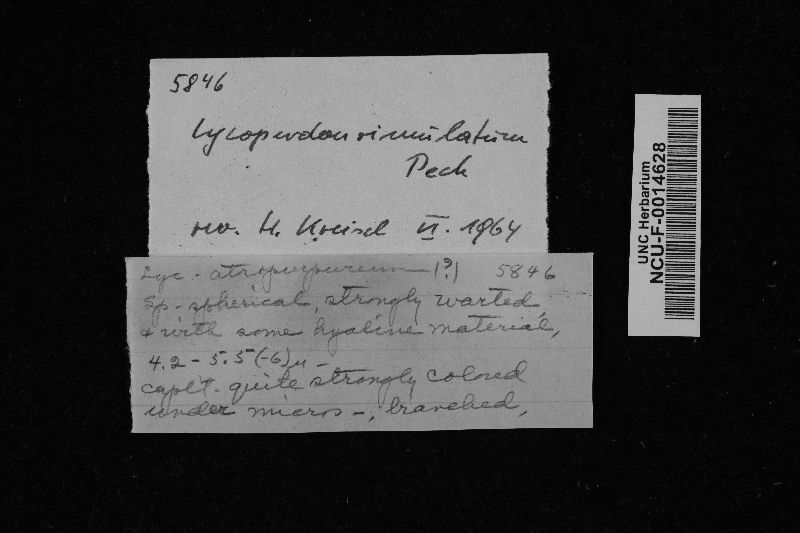 5846
Lycoperdon rimulatum
Peck
rev. H. Kreisel VI. 1964
Lyc. atropurpureum (?) 5846
Sp. spherical, strongly warted,
& with some hyaline material,
4.2 - 5.5 (-6) µ -
caplt. quite strongly colored
under micros -, branched,
UNC Herbarium
NCU-F-0014628